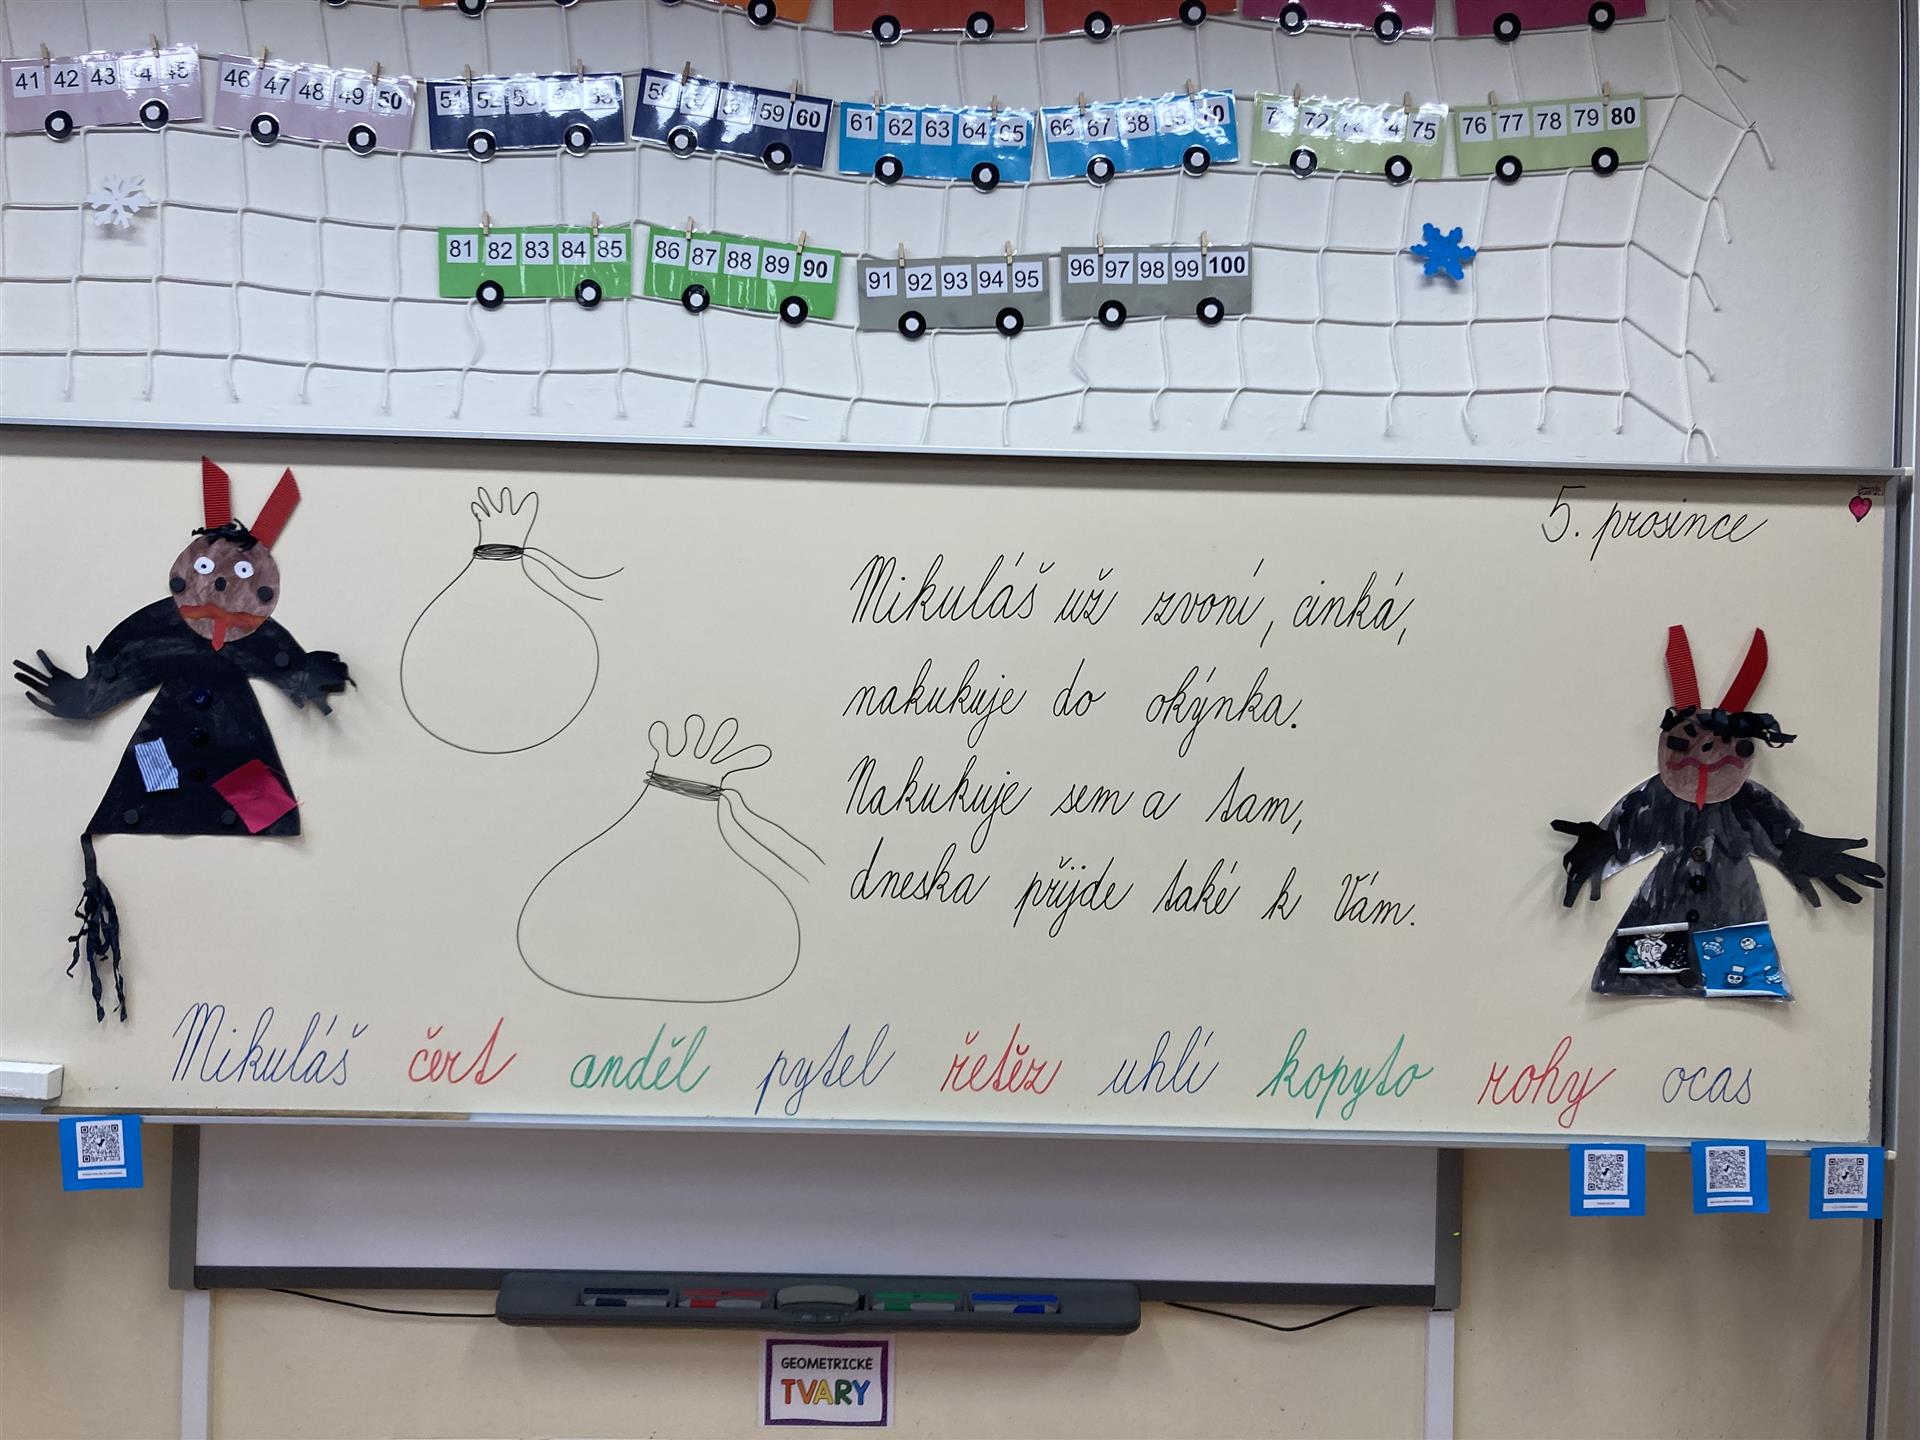 41 42 43 44 45 46 47 48 49 50 51 52 53 54 55 56 57 58 59 60 61 62 63 64 65 66 67 68 69 70 71 72 73 74 75 76 77 78 79 80
81 82 83 84 85 86 87 88 89 90 91 92 93 94 95 96 97 98 99 100
5. prosince
Mikuláš už zvoní, cinká,
nakukuje do okýnka.
Nakukuje sem a tam,
dneska přijde také k Vám.
Mikuláš čert anděl pytel řetěz uhlí kopyto rohy ocas
GEOMETRICKÉ
TVARY